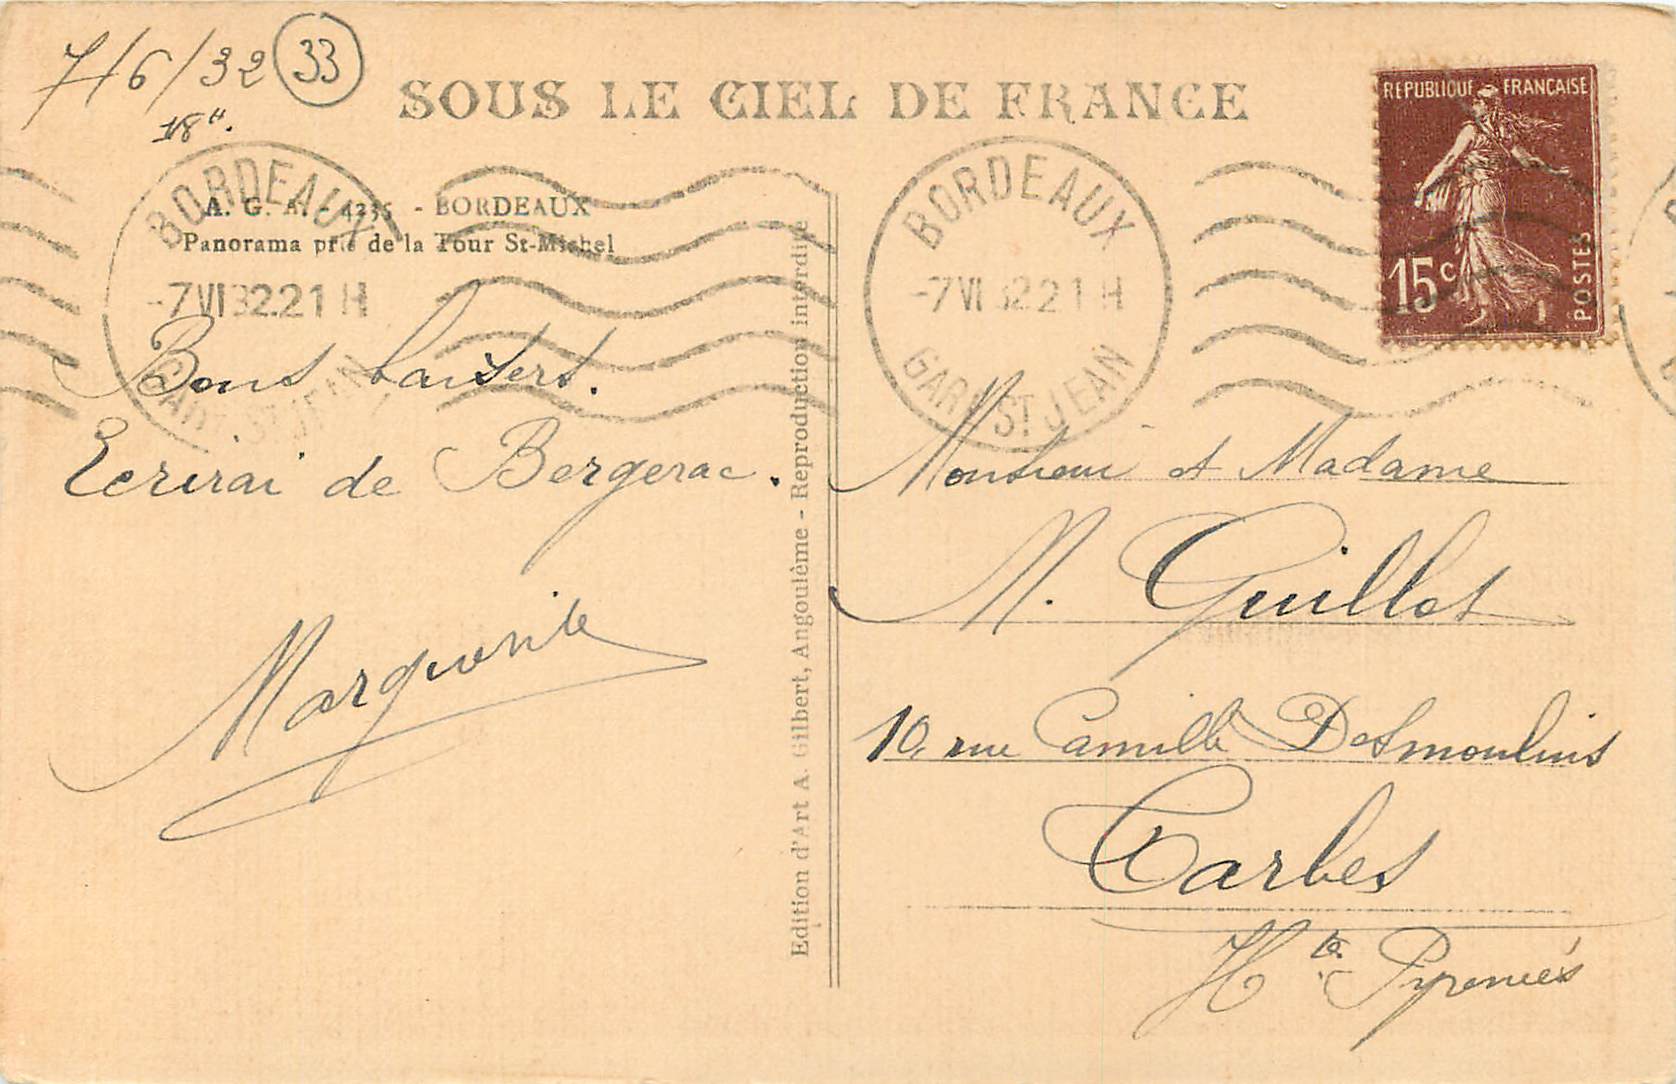 7/6/32
33
18h.
SOUS LE CIEL DE FRANCE
A. G. A. - 4235 - BORDEAUX
Panorama pris de la Tour St-Michel
BORDEAUX
-7 VI 32.21 H
GARE ST JEAN
Bons baisers.
Ecrirai de Bergerac.
Marguerite
Edition d'Art A. Gilbert, Angoulème - Reproduction interdite
BORDEAUX
-7 VI 32 21 H
GARE ST JEAN
REPUBLIQUE FRANÇAISE
15 c
POSTES
Monsieur et Madame
M. Guillot
10, rue Camille Desmoulins
Tarbes
Htes Pyrénées